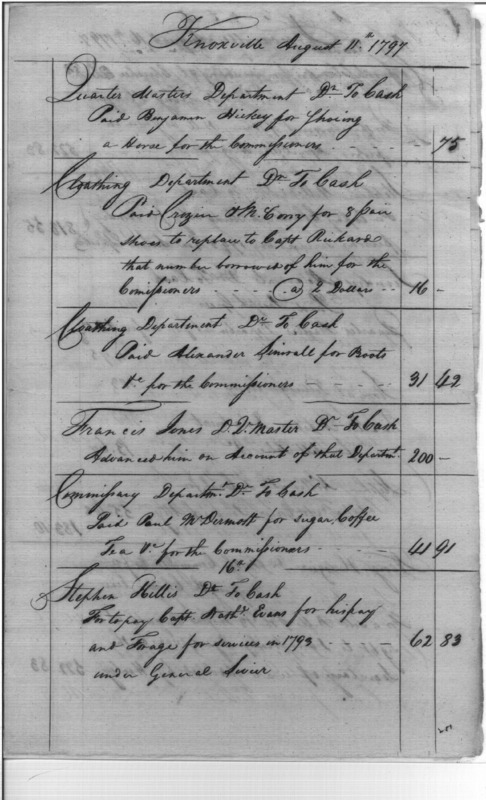 Knoxville August 11th 1797
Quarter Masters Department Dr To Cash
Paid Benjamin Hickey for Shoeing
a Horse for the Commissioners - - - 75
Cloathing Department Dr To Cash
Paid Crozier & McCorry for 8 pair
Shoes to replace to Capt Rickard
that number borrowed of him for the
Comissioners - - - - @ 2 Dollars - - 16 -
Cloathing Department Dr To Cash
Paid Alexander for Boots
&c for the Commissioners - - - - - 31 42
Francis Jones D. Qr Master Dr To Cash
Advanced him on Account of that Departmt 200 -
Commissary Departmt Dr To Cash
Paid Paul McDermott for sugar, Coffee
Tea &c for the Commissioners - - - 41 91
16th
Stephen Hillis Dr To Cash
For to pay Capt Nathl Evans for his pay
and Forage for services in 1793 - - - 62 83
under General Sevier